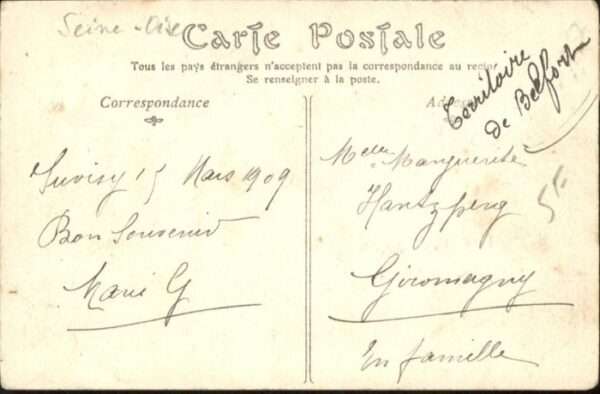 Seine-Oise
Carte Postale
Tous les pays étrangers n'acceptent pas la correspondance au recto
Se renseigner à la poste.
Correspondance
Adresse
Territoire
de Belfort
Juvisy 15 Mars 1909
Bon Souvenir
Marie G
Melle Marguerite
Hantzperg
Giromagny
En famille